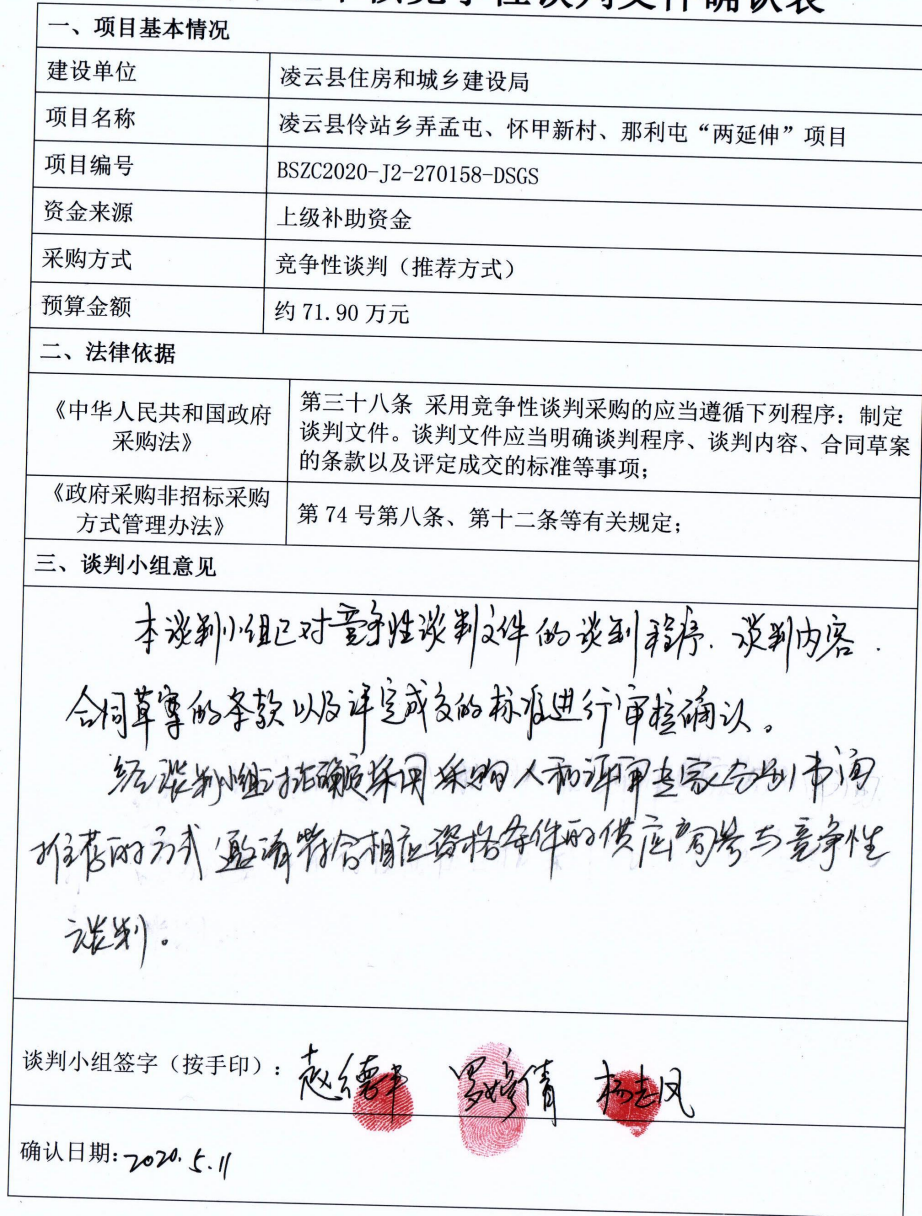 审核竞争性谈判文件确认表
一、项目基本情况
建设单位 凌云县住房和城乡建设局
项目名称 凌云县伶站乡弄孟屯、怀甲新村、那利屯“两延伸”项目
项目编号 BSZC2020-J2-270158-DSGS
资金来源 上级补助资金
采购方式 竞争性谈判（推荐方式）
预算金额 约 71.90 万元
二、法律依据
《中华人民共和国政府
采购法》
第三十八条 采用竞争性谈判采购的应当遵循下列程序：制定
谈判文件。谈判文件应当明确谈判程序、谈判内容、合同草案
的条款以及评定成交的标准等事项；
《政府采购非招标采购
方式管理办法》
第 74 号第八条、第十二条等有关规定；
三、谈判小组意见
本谈判小组已对竞争性谈判文件的谈判程序、谈判内容、
合同草案的条款以及评定成交的标准进行审核确认。
经谈判小组讨论确定采用采购人和评审专家分别书面
推荐的方式邀请符合相应资格条件的供应商参与竞争性
谈判。
谈判小组签字（按手印）： 赵德 罗婷倩 杨志凤
确认日期：2020.5.11